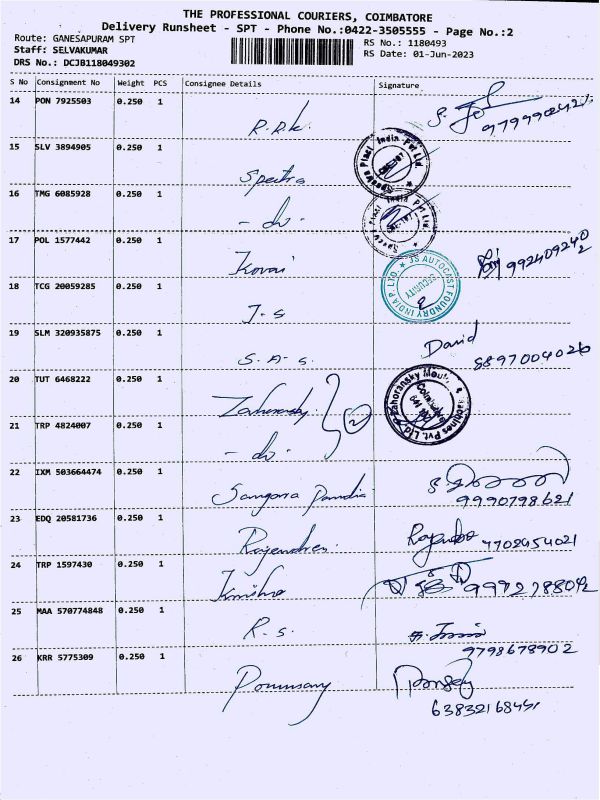 THE PROFESSIONAL COURIERS, COIMBATORE
Delivery Runsheet - SPT - Phone No.:0422-3505555 - Page No.:2
Route: GANESAPURAM SPT
RS No.: 1180493
Staff: SELVAKUMAR
RS Date: 01-Jun-2023
DRS No.: DCJB118049302
S No Consignment No Weight PCS Consignee Details Signature
14 PON 7925503 0.250 1
15 SLV 3894905 0.250 1
Spectra
16 TMG 6085928 0.250 1
- do -
17 POL 1577442 0.250 1
Kovai
9924092402
18 TCG 20059285 0.250 1
J-S
JS AUTOCAST FOUNDRY INDIA P. LTD.
SECURITY
19 SLM 320935875 0.250 1
S. A. S.
David
8897004026
20 TUT 6468222 0.250 1
Zahoransky
2
21 TRP 4824007 0.250 1
- do -
22 IXM 503664474 0.250 1
Sangona Pandia
9990798621
23 EDQ 20581736 0.250 1
Rajendren
4702454021
24 TRP 1597430 0.250 1
Krishna
25 MAA 570774848 0.250 1
R. S.
9798678902
26 KRR 5775309 0.250 1
Ponnusamy